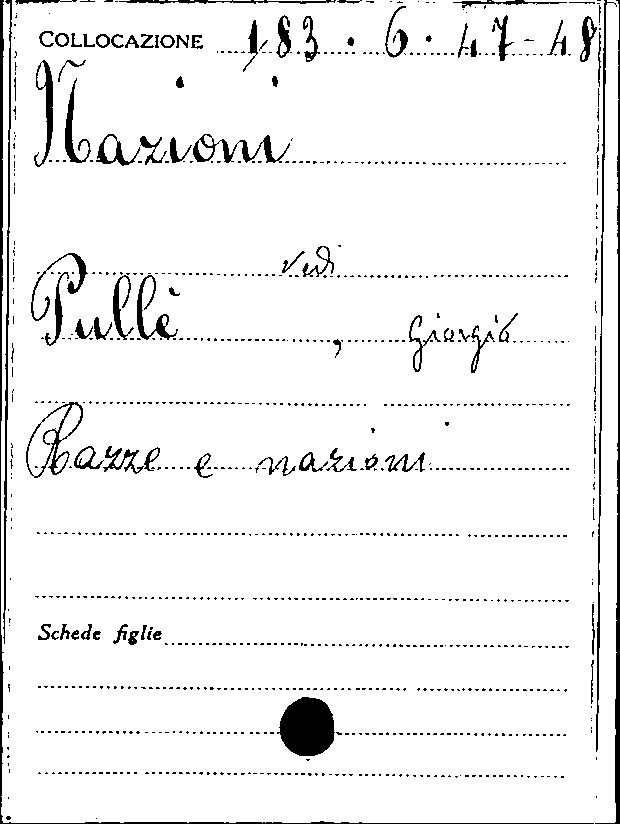 COLLOCAZIONE 183 . 6 . 47-48
Nazioni
vedi
Pullè , Giorgio
Razze e nazioni
Schede figlie